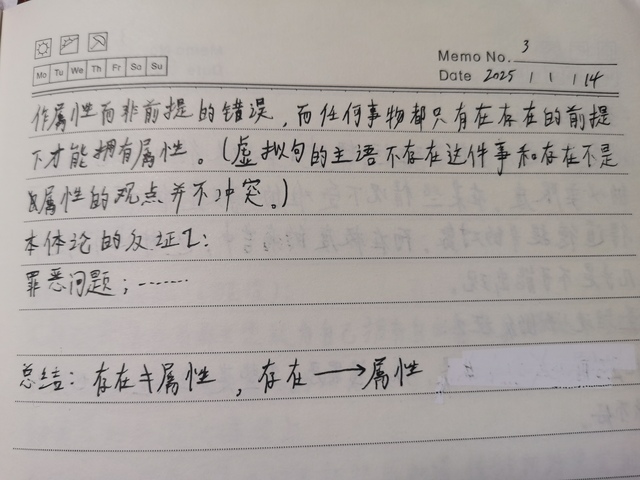 Memo No. 3
Mo Tu We Th Fr Sa Su
Date 2025 / 1 / 14
作属性而非前提的错误，而任何事物都只有在存在的前提
下才能拥有属性。（虚拟句的主语不存在这件事和存在不是
属性的观点并不冲突。）
本体论的反证2：
罪恶问题；……
总结：存在≠属性，存在→属性